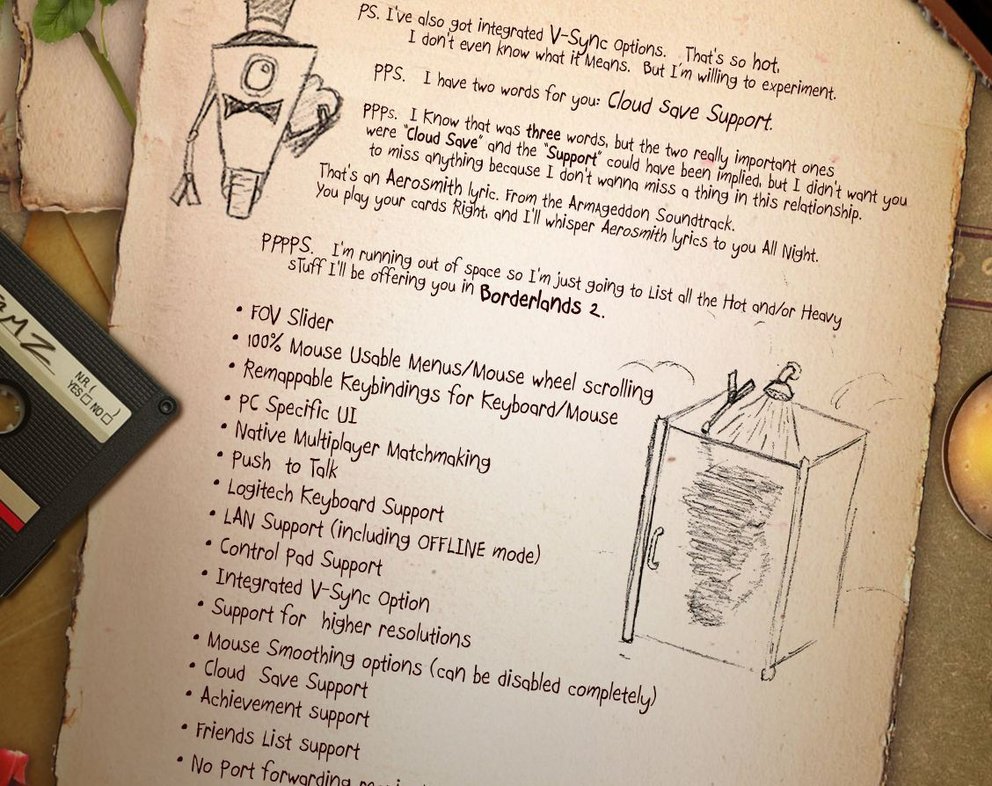 PS. I've also got integrated V-Sync Options. That's so hot,
I don't even know what it Means. But I'm willing to experiment.
PPS. I have two words for you: Cloud Save Support.
PPPs. I Know that was three words, but the two really important ones
were "Cloud Save" and the "Support" could have been implied, but I didn't want you
to miss anything because I don't wanna miss a thing in this relationship.
That's an Aerosmith lyric. From the Armageddon Soundtrack.
You play your cards Right, and I'll whisper Aerosmith lyrics to you All Night.
PPPPS. I'm running out of space so I'm just going to List all the Hot and/or Heavy
sTuff I'll be offering you in Borderlands 2.
• FOV Slider
• 100% Mouse Usable Menus/Mouse wheel scrolling
• Remappable Keybindings for Keyboard/Mouse
• PC Specific UI
• Native Multiplayer Matchmaking
• Push to Talk
• Logitech Keyboard Support
• LAN Support (including OFFLINE mode)
• Control Pad Support
• Integrated V-Sync Option
• Support for higher resolutions
• Mouse Smoothing options (can be disabled completely)
• Cloud Save Support
• Achievement support
• Friends List support
• No Port forwarding
N.R.
YES NO